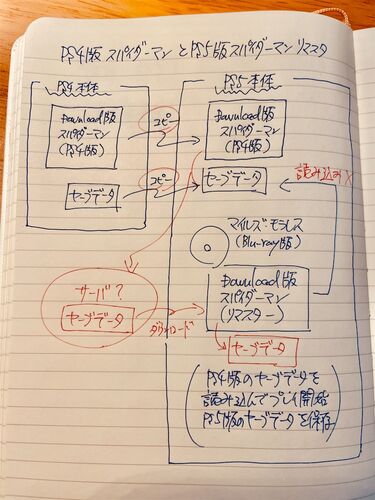 PS4版 スパイダーマン と PS5版 スパイダーマン リマスタ
PS4 本体
PS5 本体
Download版
スパイダーマン
(PS4版)
コピー
Download版
スパイダーマン
(PS4版)
セーブデータ
コピー
セーブデータ
読み込み ×
マイルズ・モラレス
(Blu-ray版)
サーバ?
セーブデータ
ダウンロード
Download版
スパイダーマン
(リマスター)
セーブデータ
PS4版のセーブデータを
読み込んでプレイ開始
PS5版のセーブデータを保存